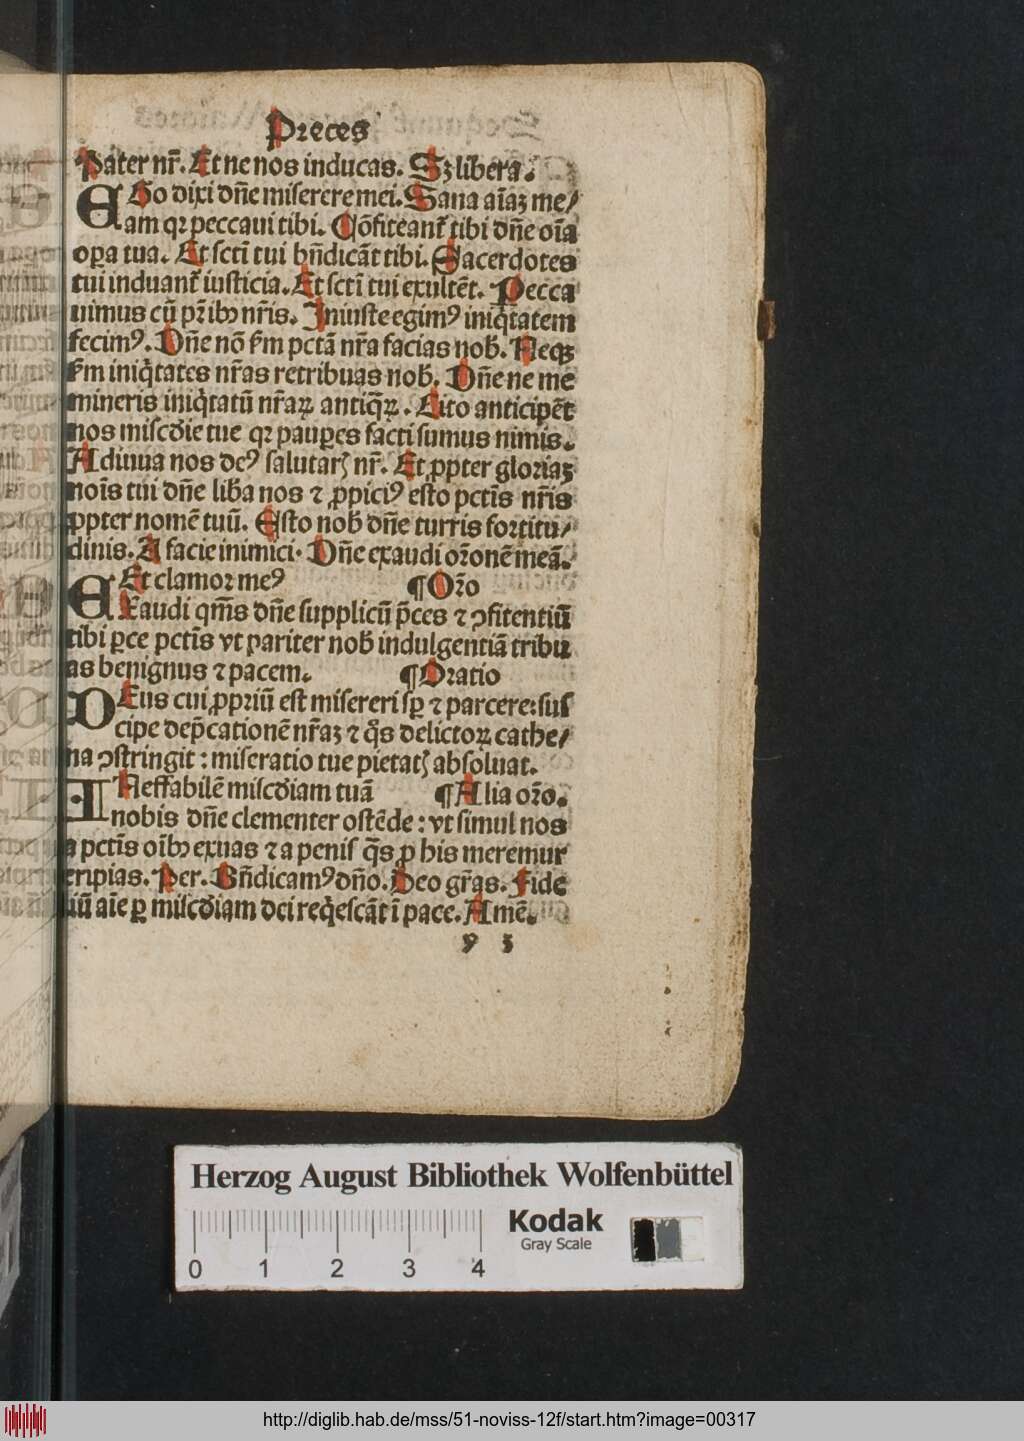 Preces
Pater nr̃. Et ne nos inducas. Sꝫ libera.
EGo dixi dñe miserere mei. Sana aīaꝫ me/
am qꝛ peccaui tibi. Cōfiteant᷑ tibi dñe oīa
oꝑa tua. Et scti tui bñdicāt tibi. Sacerdotes
tui induant᷑ iusticia. Et scti tui exultēt. Pecca
uimus cū pr̃ibꝰ nr̃is. Iniuste egimꝰ iniq̇tatem
fecimꝰ. Dñe nō ẜm pctā nr̃a facias nob̃. Neqꝫ
ẜm iniq̇tates nr̃as retribuas nob̃. Dñe ne me
mineris iniq̇tatū nr̃aꝝ antiq̄ꝝ. Cito anticipēt
nos miscd̓ie tue qꝛ pauꝑes facti sumus nimis.
Adiuua nos deꝰ salutarꝭ nr̃. Et ꝓpter gloriaꝫ
noīs tui dñe lib̃a nos ⁊ ꝓpiciꝰ esto pctīs nr̃is
ꝓpter nomē tuū. Esto nob̃ dñe turris fortitu/
dinis. A facie inimici. Dñe exaudi or̃onē meā.
Et clamor meꝰ ¶ Or̃o
EXaudi qm̄s dñe supplicū p̄ces ⁊ ꝯfitentiū
tibi ꝑce pctīs vt pariter nob̃ indulgentiā tribu
as benignus ⁊ pacem. ¶ Oratio
DEus cui ꝓpriū est misereri sꝑ ⁊ parcere: sus
cipe dep̄cationē nr̃aꝫ ⁊ q̊s delictoꝝ cathe/
na ꝯstringit: miseratio tue pietatꝭ absoluat.
INeffabilē miscd̓iam tuā ¶ Alia or̃o.
nobis dñe clementer ostēde: vt simul nos
a pctīs oībꝰ exuas ⁊ a penis q̄s ꝓ his meremur
eripias. Per. Bñdicamꝰ dño. Deo gr̃as. Fide
liū aīe ꝑ miscd̓iam dei req̇escāt ī pace. Amē.
y 3
Herzog August Bibliothek Wolfenbüttel
Kodak
Gray Scale
0 1 2 3 4
http://diglib.hab.de/mss/51-noviss-12f/start.htm?image=00317